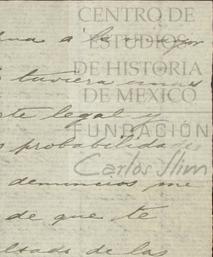 CENTRO DE
ESTUDIOS
DE HISTORIA
DE MEXICO
FUNDACIÓN
Carlos Slim
á la mayor
tuviera unas
legal y
probabilidades
denuncios me
de que te
de las